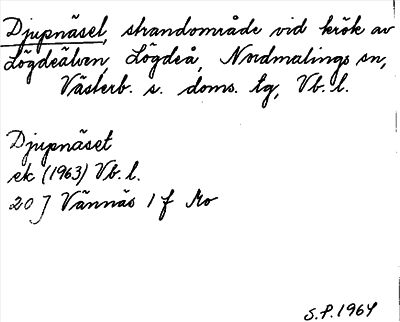 Djupnäset, strandområde vid krök av
Lögdeälven, Lögdeå, Nordmalings sn,
Västerb. s. doms. tg, Vb. l.
Djupnäset
ek (1963) Vb. l.
20 J Vännäs 1 f Mo
S.P. 1964